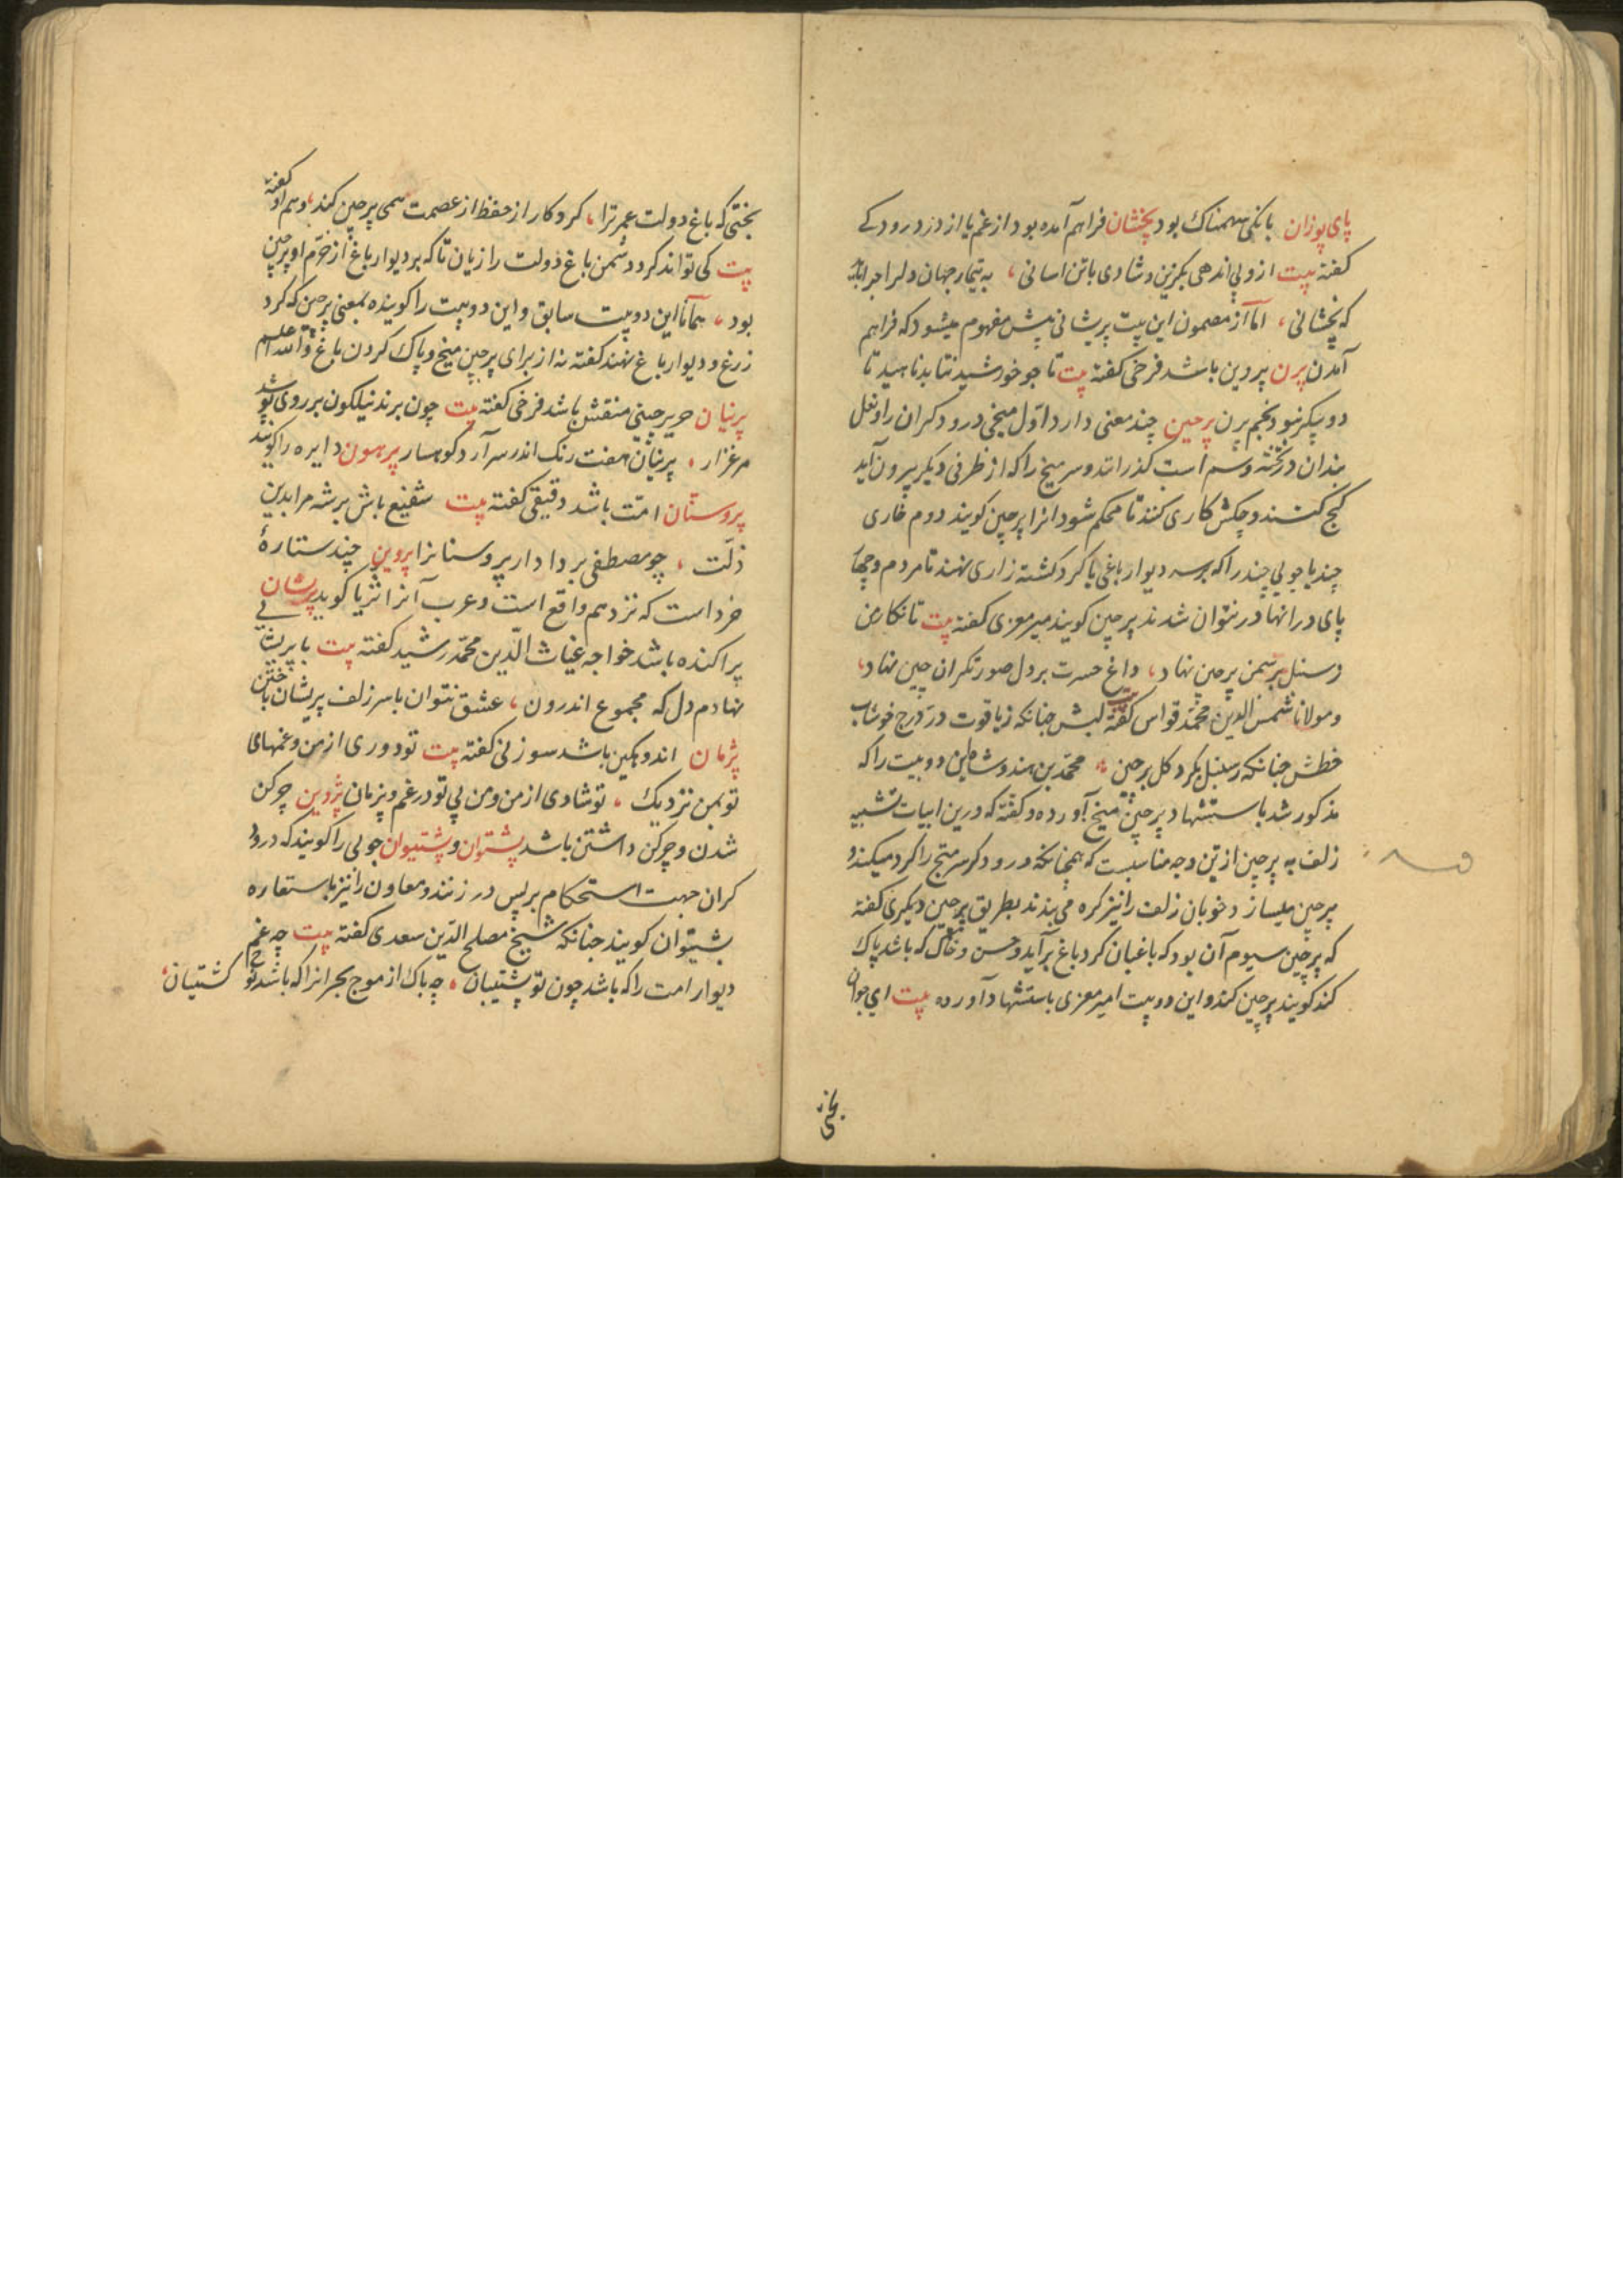 پای پوزان بانکی سهمناک بود پخشان فراهم آمده بود از غم یا از درد رودکی
کفته بیت ازو بی اندهی بکزین و شادی باتن اسانی، به تیمار جهان دلرا چرا باید
که پخشانی، اما از مضمون این بیت پریشانی پیش مفهوم میشود که فراهم
آمدن پرن پروین باشد فرخی کفته بیت تا جو خورشید نتابد ناهید تا
دو پیکر نبود نجم پرن پرچین چند معنی دارد اول میخی درودکران را و نعل
بندان در تخته وسم است کذرانند و سر میخ را که از طرفی دیکر بیرون آید
کج کنند و چکش کاری کنند تا محکم شود انرا پرچین کویند دوم خاری
چند یا چوبی چند را که بر سه دیوار باغی یا کرد کشته زاری نهند تا مردم و چها
پای در انها در نتوان شدند پرچین کویند میر معزی کفته بیت تا نکار من
ز سنبل بر سمن پرچین نهاد، داغ حسرت بر دل صورتکران چین نهاد،
و مولانا شمس الدین محمد قواس کفته بیت لبش جنانکه ز یاقوت در درج خوشاب
خطش جنانکه ز سنبل بکرد کل پرچین، محمد بن هندوشاه این دو بیت را که
مذکور شد باستشهاد پرچین میخ آورده و کفته که درین ابیات تشبیه
زلف به پرچین ازین وجه مناسبست که همچنانکه درودکر سر میخ را کرد میکند و
پرچین میسازد خوبان زلف را نیز کره می بندند بطریق پرچین دیکری کفته
که پرچین سیوم آن بود که باغبان کرد باغ برآید و خس و خاک که باشد پاک
کند کویند پرچین کند و این دو بیت امیر معزی باستشهاد آورده بیت ای جوان
بختی که باغ دولت عمر ترا، کردکار از حفظ از عصمت همی پرچین کند، و هم او کفته
بیت کی تواند کرد دشمن باغ دولت را زیان تا که بر دیوار باغ از حزم او پرچین
بود، همانا این دو بیت سابق و این دو بیت را کوینده بمعنی پرچین که کرد
زرغ و دیوار باغ نهند کفته نه از برای پرچین میخ و پاک کردن باغ و الله اعلم
پرنیان حریر چینی منقش باشد فرخی کفته بیت چون پرند نیلکون بر روی پوشد
مرغزار، پرنیان هفت رنک اندر سر آرد کوهسار پرهون دایره را کویند
پروستان امت باشد دقیقی کفته بیت شفیع باش بر شه مرا بدین
ذلت، چو مصطفی بر دادار پروستانرا پروین چند ستاره
خرد است که نزدهم واقع است و عرب آنرا ثریا کوید پریشان
پراکنده باشد خواجه غیاث الدین محمد رشید کفته بیت با پریشانی
نهادم دل که مجموع اندرون، عشق نتوان باسر زلف پریشان باختن
پژمان اندوهکین باشد سوزنی کفته بیت تو دوری از من و غمهای
تو بمن نزدیک، تو شادی از من و من بی تو در غم و پژمان پژوین چرکن
شدن و چرکن داشتن باشد پشتوان و پشتیوان چوبی را کویند که درود
کران جهت استحکام بر پس در زنند و معاون را نیز باستعاره
پشتیوان کویند جنانکه شیخ مصلح الدین سعدی کفته بیت چه غم
دیوار امت را که باشد چون تو پشتیبان، چه باک از موج بحر انرا که باشد نوح کشتیبان،